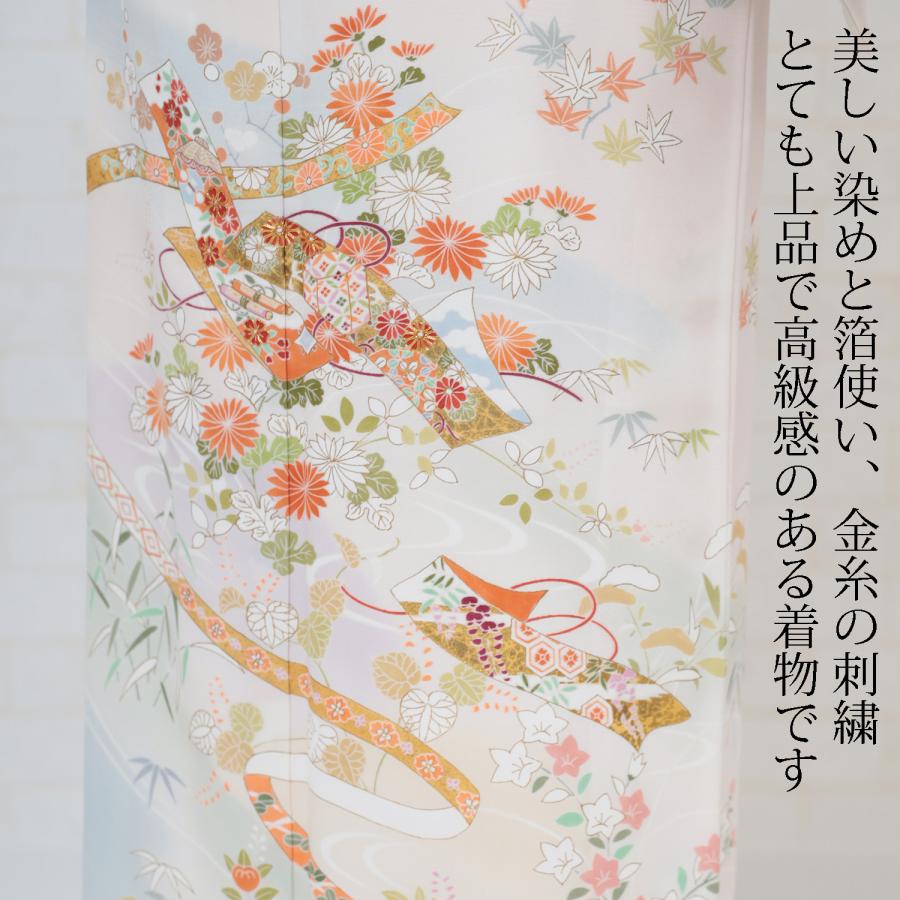 美しい染めと箔使い、金糸の刺繍
とても上品で高級感のある着物です